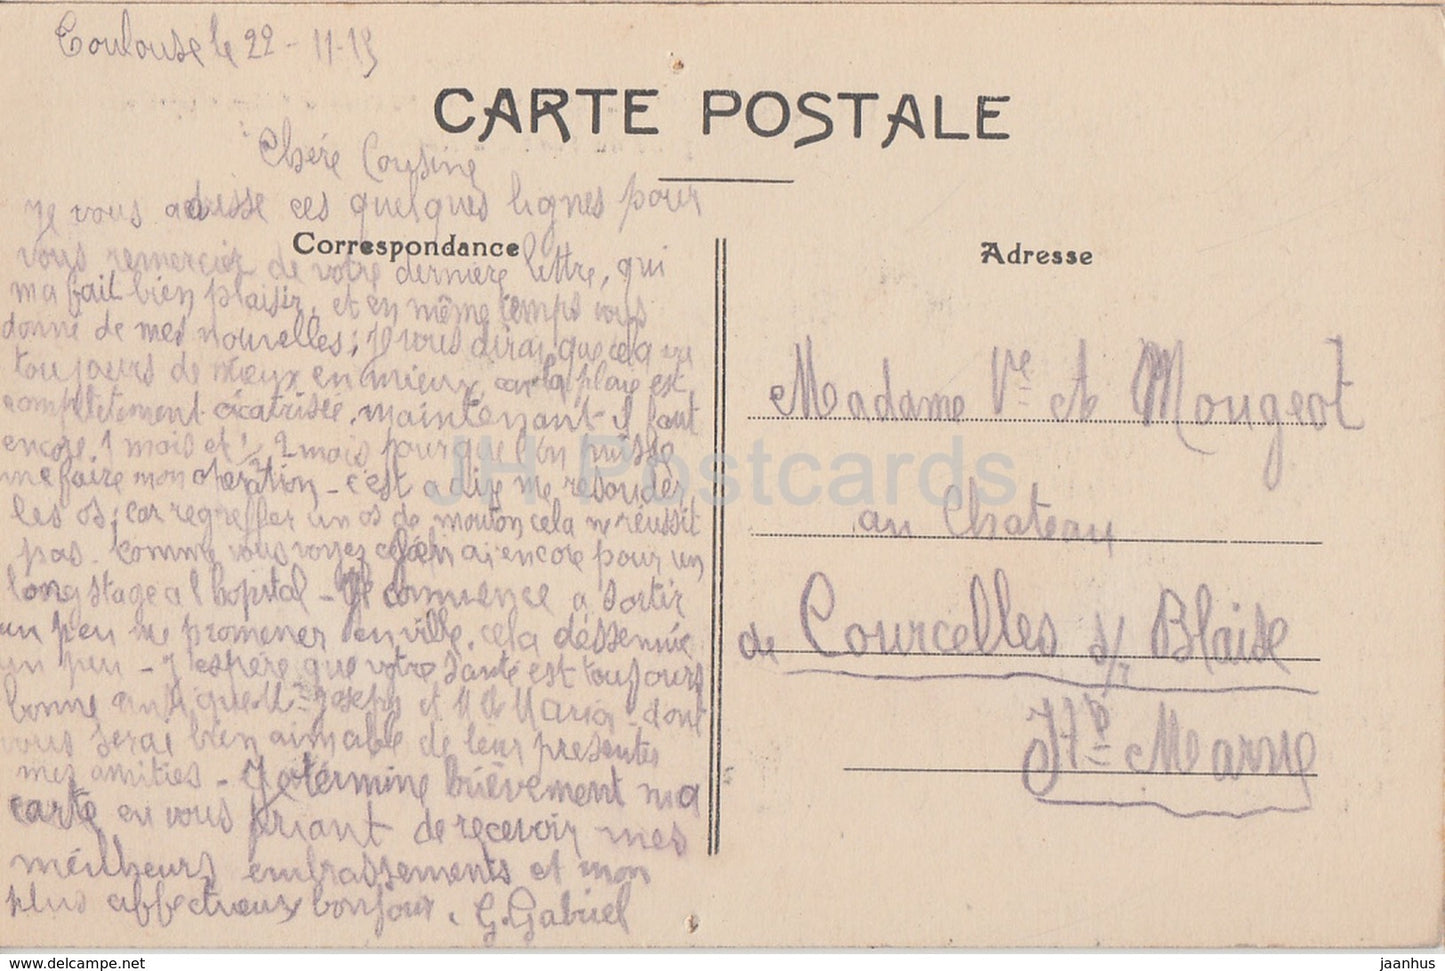 Toulouse le 22-11-15
CARTE POSTALE
Chére Cousine
Je vous adrisse ces quelques lignes pour
Correspondance
vous remerciez de votre dernière lettre, qui
ma fait bien plaisir, et en même temps vous
donné de mes nouvelles; je vous dirai que cela va
toujours de mieux en mieux, car la plaie est
complètement cicatrisée, maintenant il faut
encore 1 mois et ½ 2 mois pour que l'on puisse
me faire mon opération - c'est a dire me resouder
les os; car regreffer un os de mouton cela ne réussit
pas. Comme vous voyez j'en ai encore pour un
long stage a l'hopital - Je commence a sortir
un peu me promener en ville, cela déssennuie
un peu - J'espère que votre santé est toujours
bonne que Joseph et Maria - dont
vous serai bien aimable de leur présentes
mes amitiés - Je términe brièvement ma
carte en vous priant de recevoir mes
meilheurs embrassements et mon
plus affectueux bonjour. G. Gabriel
Adresse
Madame Vve A Mougeot
au Chateau
de Courcelles s/ Blaise
Hte Marne
JH Postcards
www.delcampe.net
jaanhus